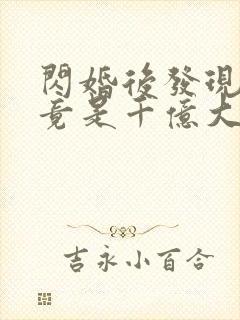 閃婚後發現
竟是千億大
吉永小百合